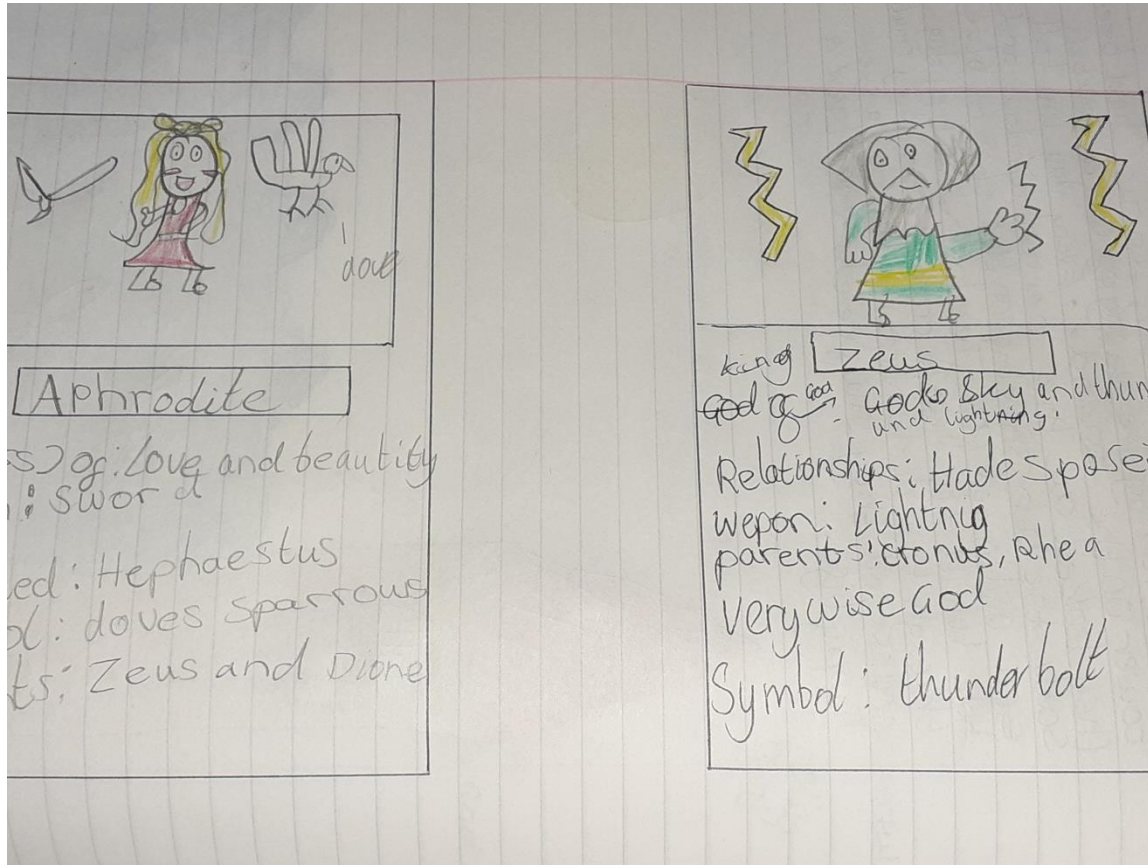 dove
Aphrodite
s) of: Love and beautity
: sword
ed: Hephaestus
ol: doves sparrows
ts: Zeus and Dione
king of
Zeus
God of God Gods Sky and thun
and lightning.
Relationships: Hades pose
wepon: Lightnig
parents: cronus, Rhea
very wise God
Symbol: thunder bolt